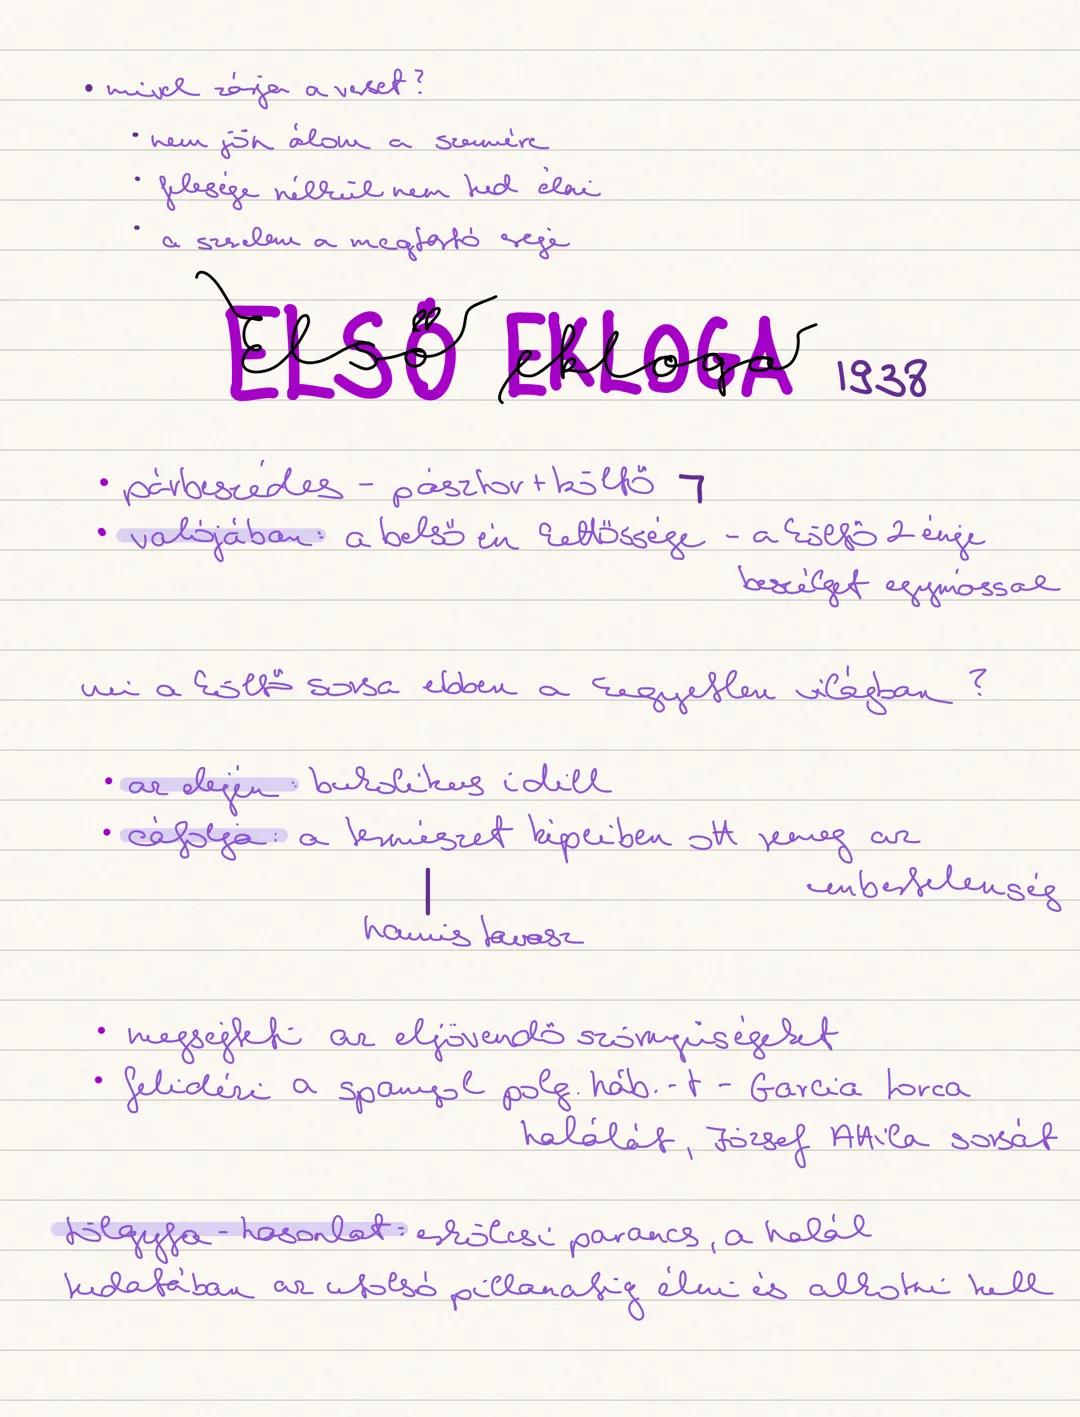 • mivel zárja a verset?
• nem jön álom a szemére
• felesége nélkül nem tud élni
• a szerelem a megtartó ereje
ELSŐ EKLOGA 1938
Első ekloga
• párbeszédes - pásztor + költő ㄱ
• valójában: a belső én kettőssége - a költő 2 énje
beszélget egymással
mi a költő sorsa ebben a kegyetlen világban?
• az elején: bukolikus idill
• cáfolja: a természet képeiben ott remeg az
embertelenség
hamis tavasz
• megsejteti az eljövendő szörnyűségeket
• felidézi a spanyol polg. háb.-t - Garcia Lorca
halálát, József Attila sorsát
tölgyfa-hasonlat: erkölcsi parancs, a halál
tudatában az utolsó pillanatig élni és alkotni kell